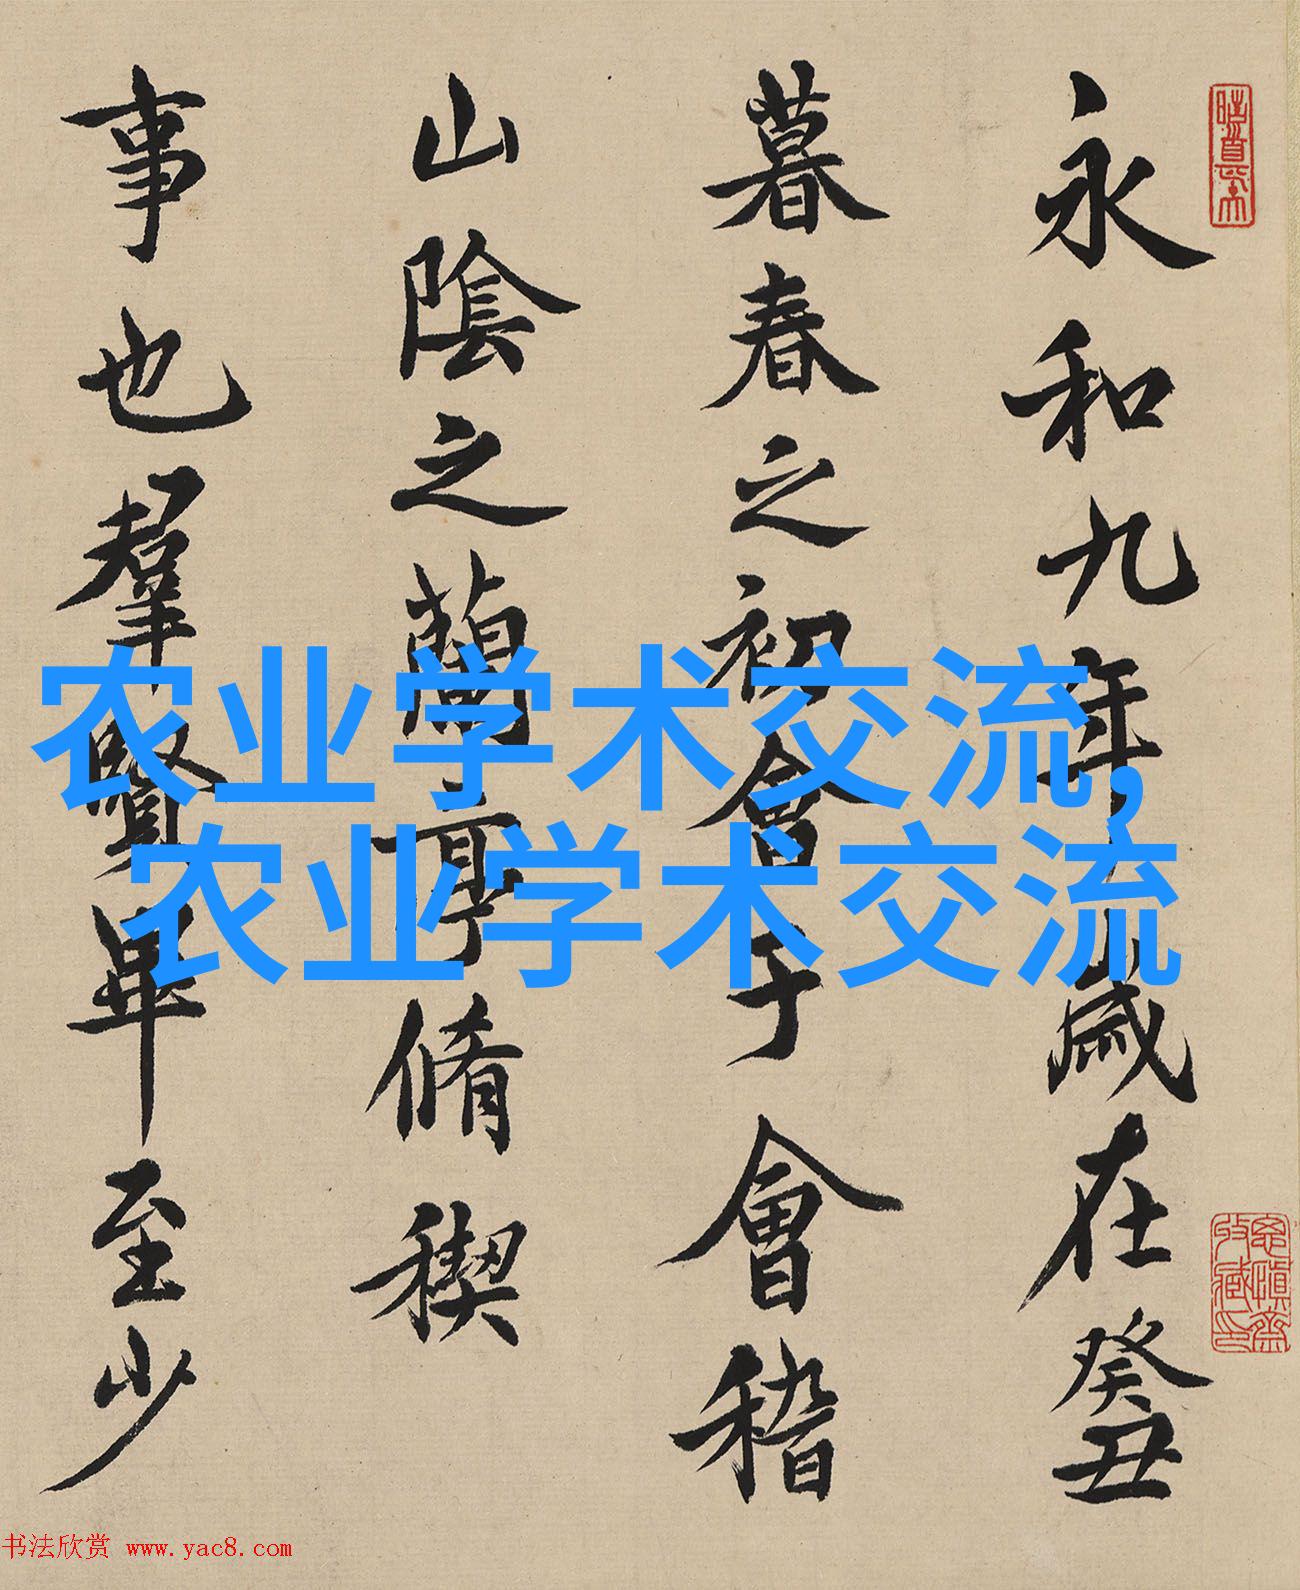 永和九年歲在癸丑
暮春之初會于會稽
山陰之蘭亭脩稧
事也羣賢畢至少
农业学术交流,
农业学术交流
书法欣赏 www.yac8.com